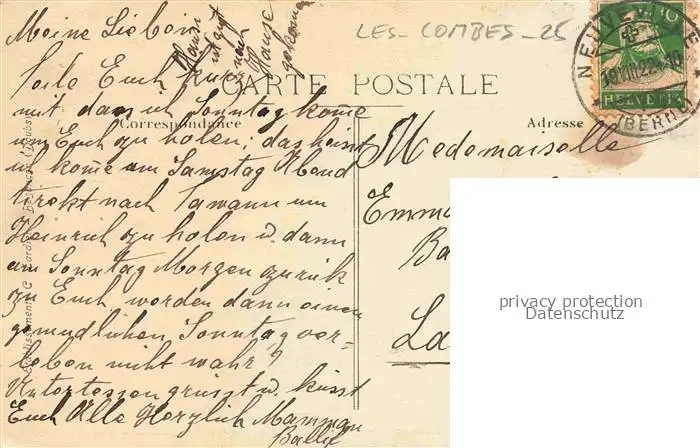 LES-COMBES-25
Hansi
ist gut
nach
Hause
gekomen
CARTE POSTALE
Correspondance
Adresse
HELVETIA
(BERN)
Meine Lieben
Teile Euch kurz
mit dass ich Sonntag kome
um Euch zu holen; das heisst
ich kome am Samstag Abend
direkt nach Twann um
Heinrich zu holen u. dann
am Sonntag Morgen zurük
zu Euch, werden dann einen
gemudlichen Sonntag ver-
leben nicht wahr?
Untertessen grüsst u. küsst
Euch Alle Herzlich Mamman
Medemaiselle
Emma
Ba
La
privacy protection
Datenschutz